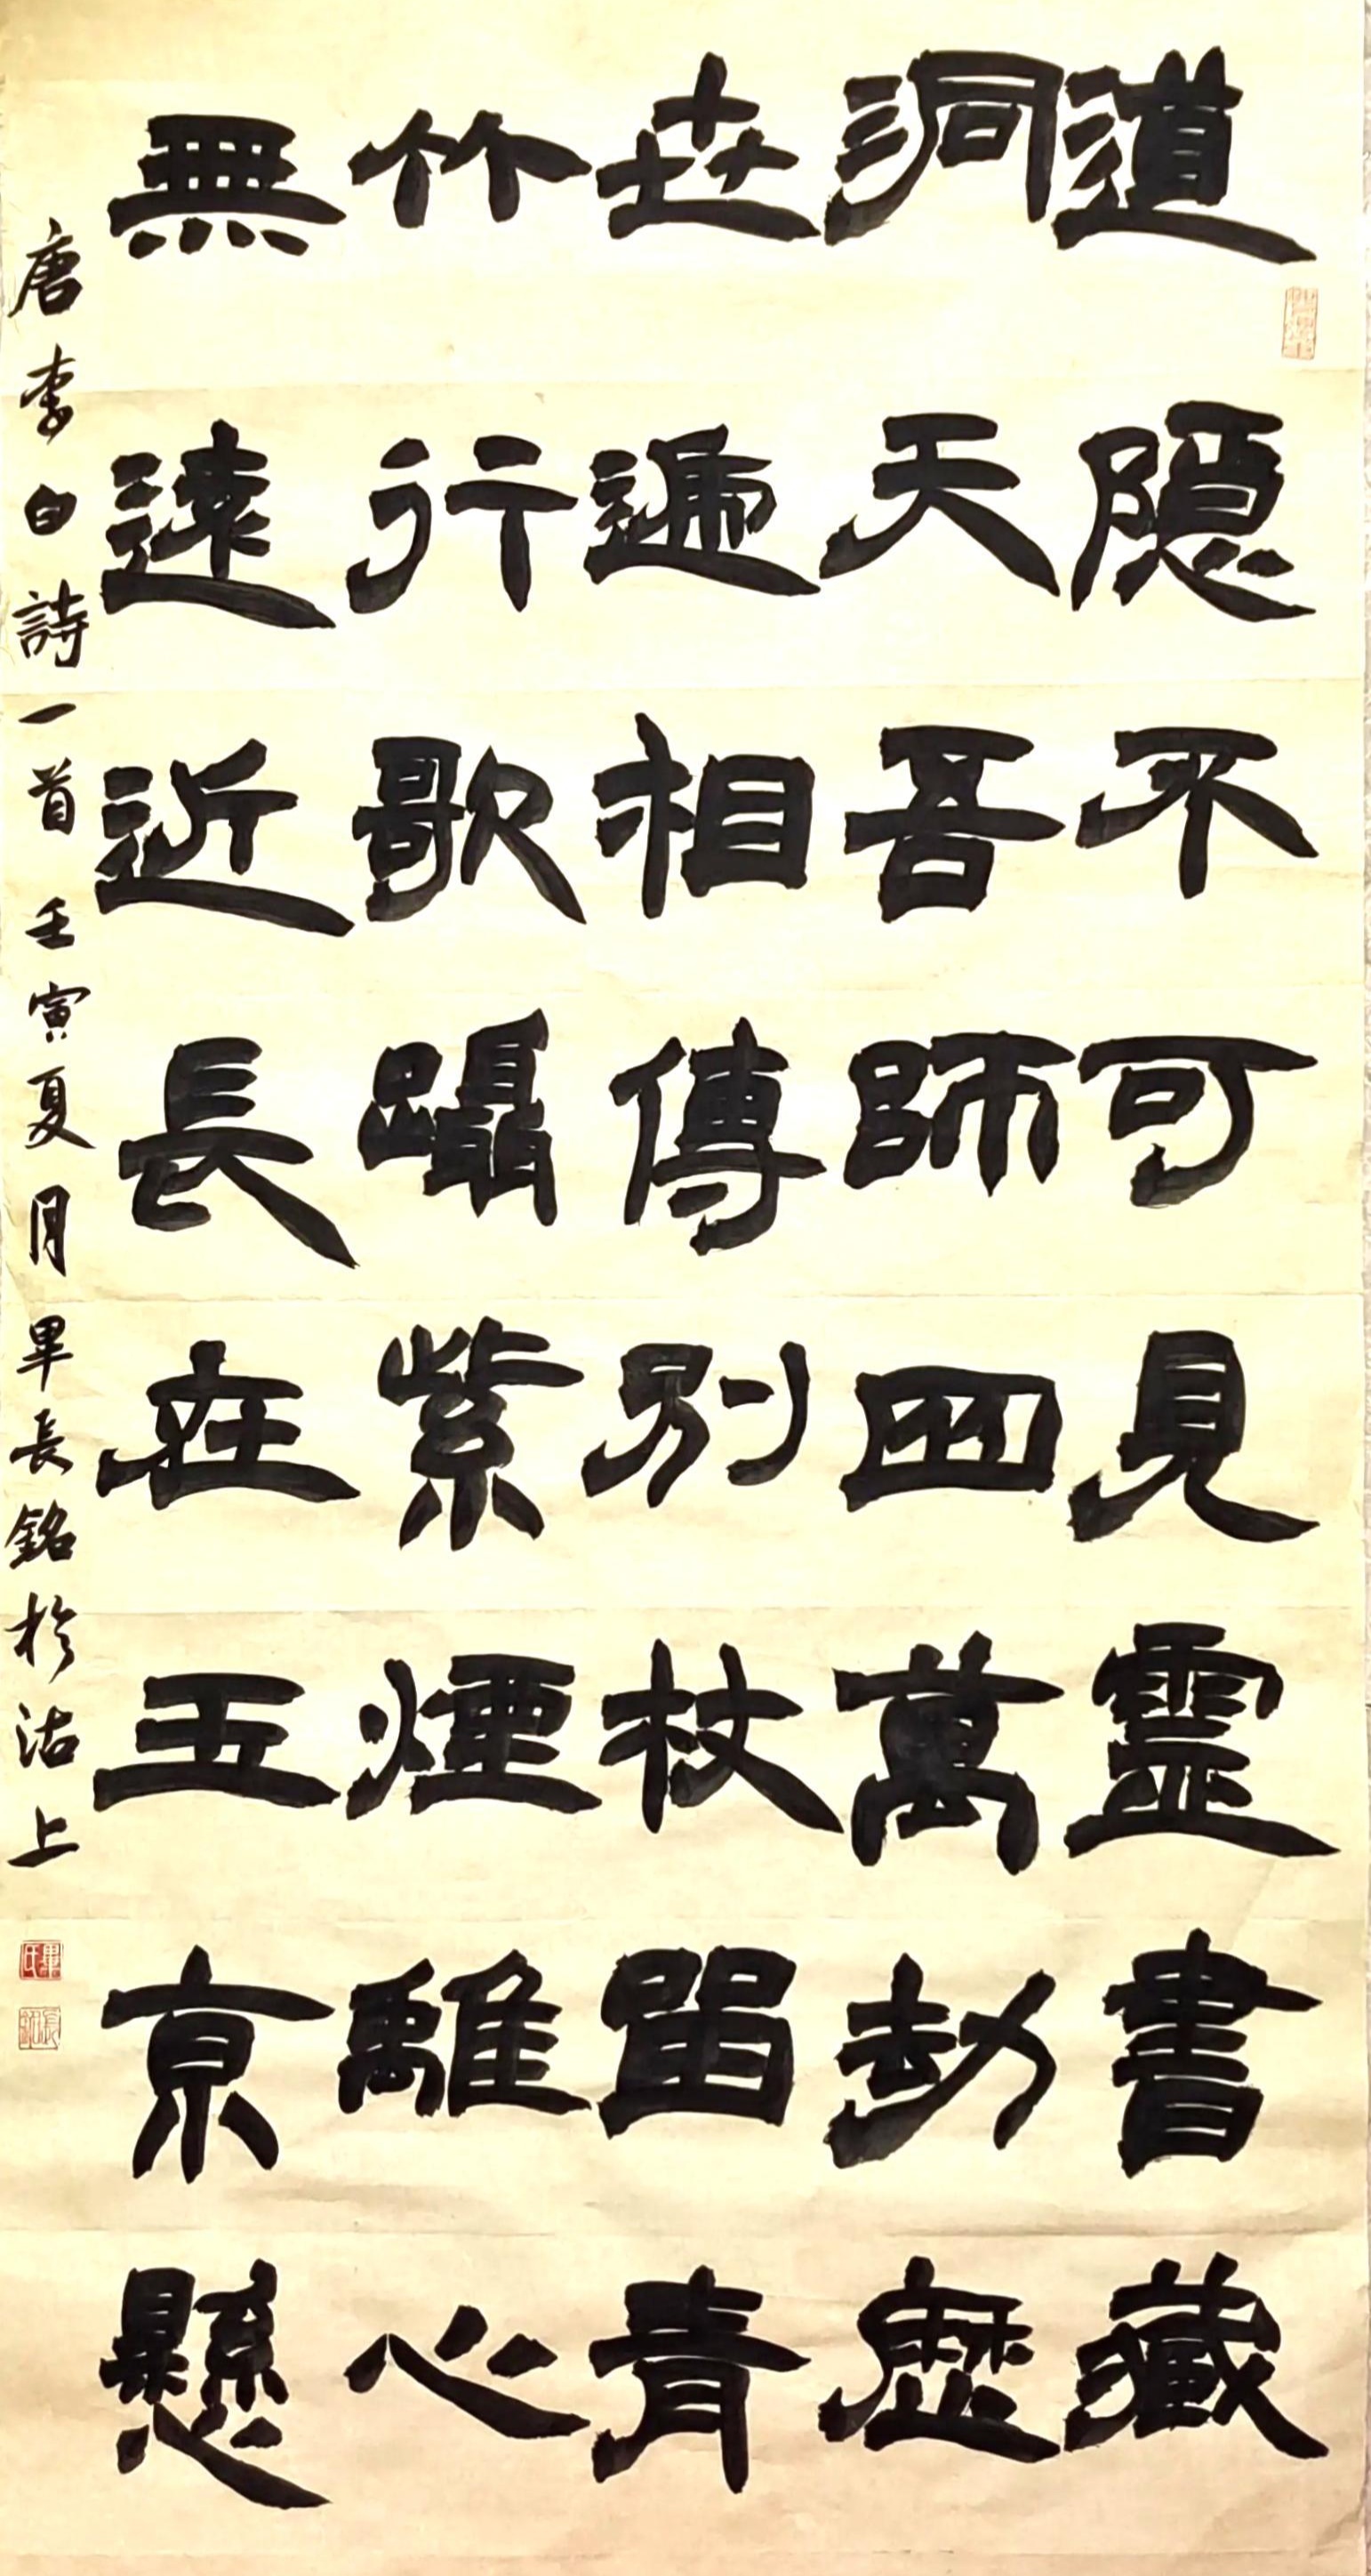 道隱不可見靈書藏
洞天吾師四萬劫歷
世遞相傳別杖留青
竹行歌躡紫煙離心
無遠近長在玉京懸
唐李白詩一首壬寅夏月畢長銘於沽上
畢氏
長銘